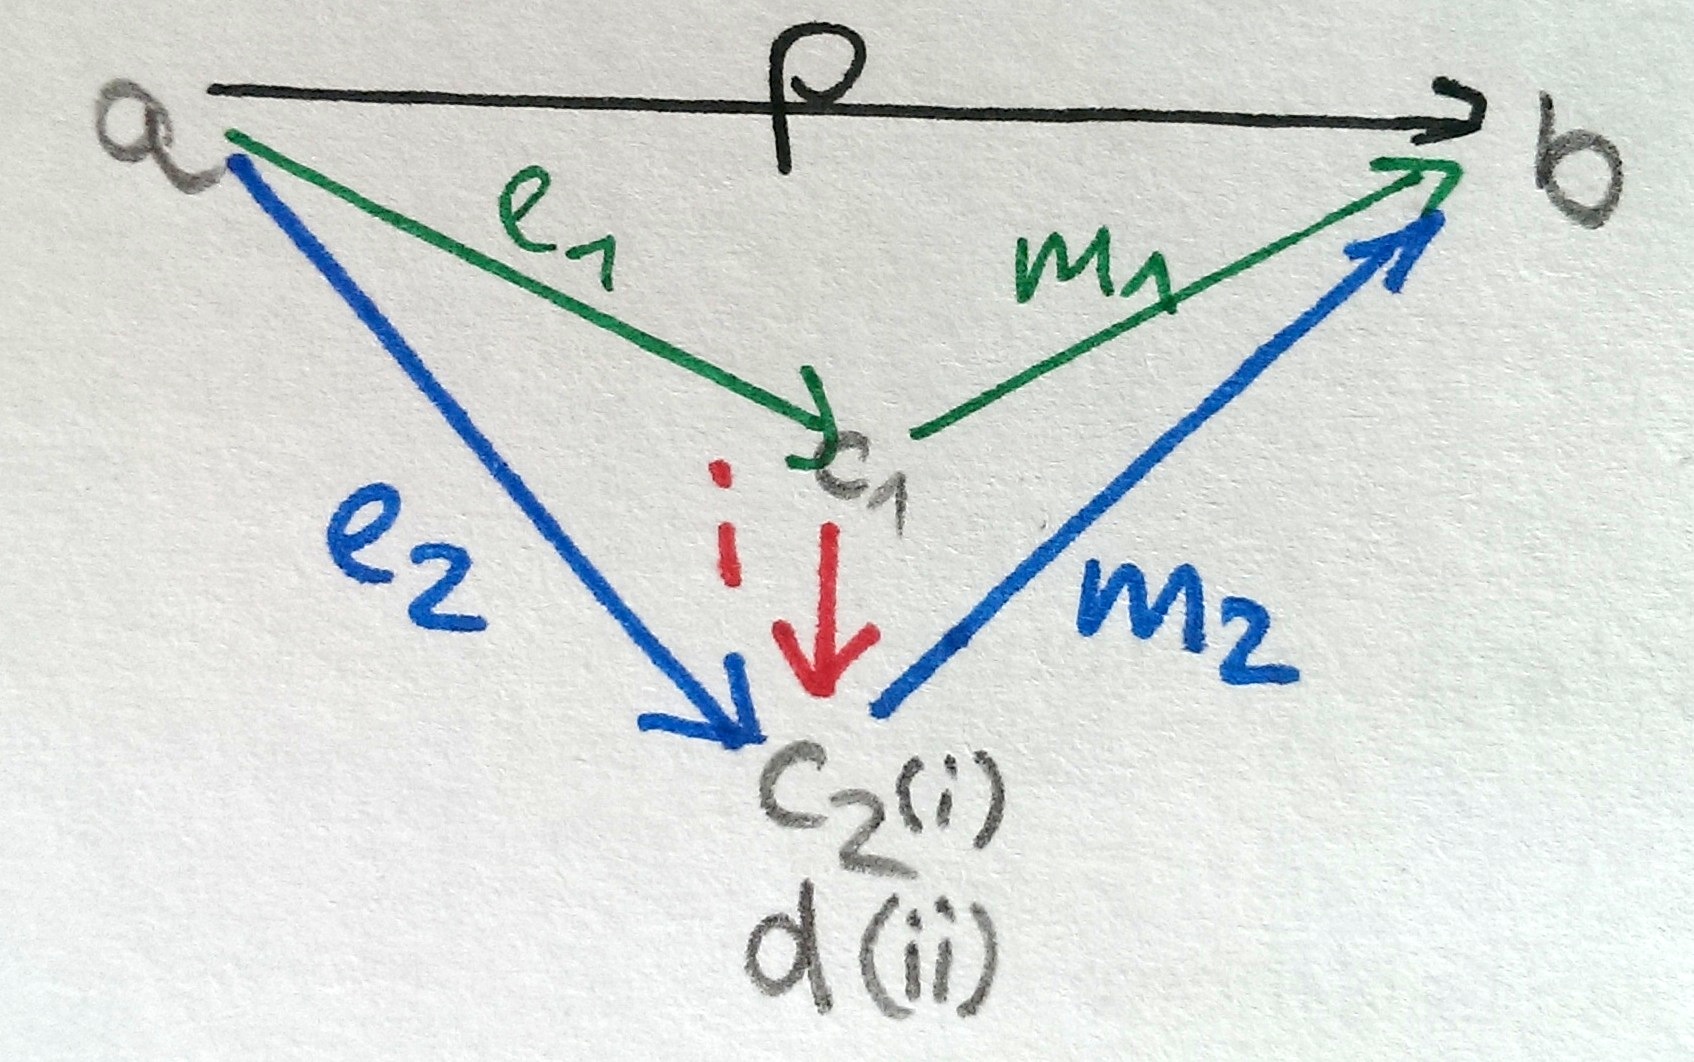 p
a
b
e1
m1
c1
i
e2
m2
c2(i)
d(ii)